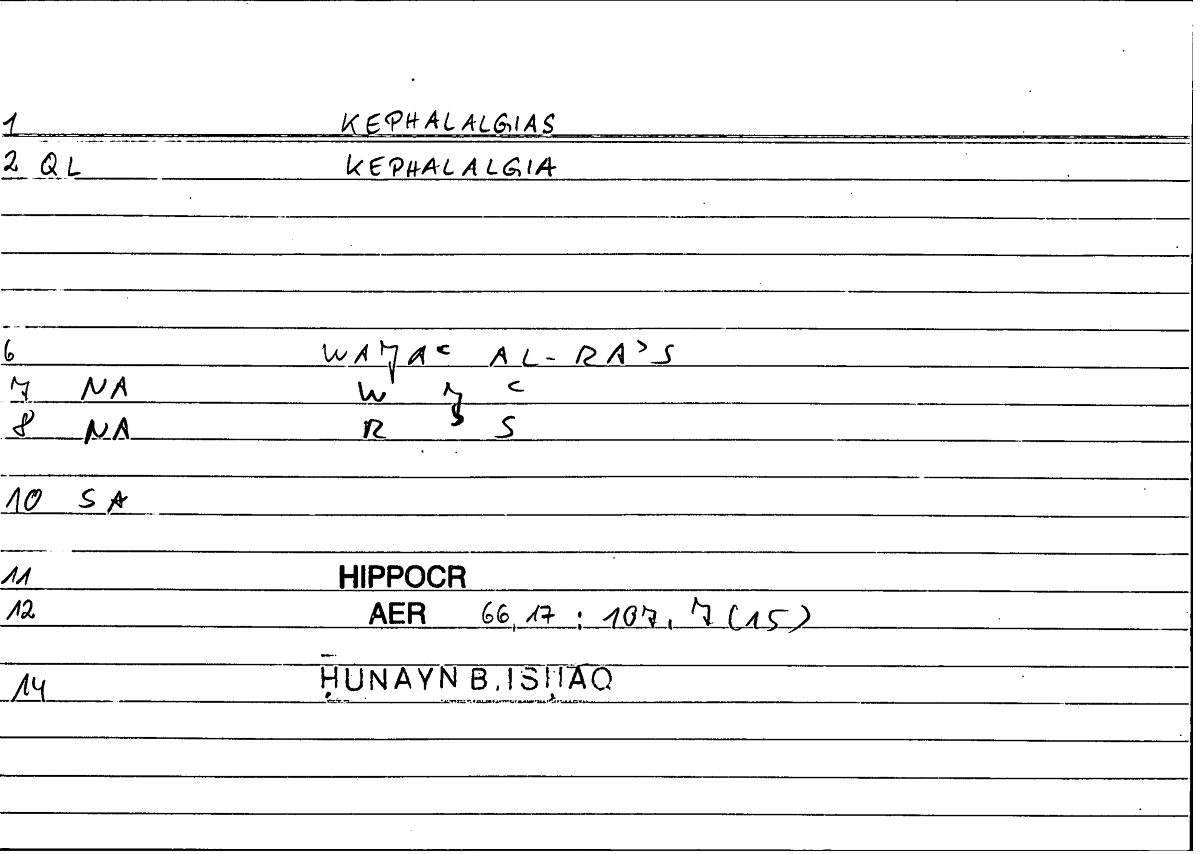 1 KEPHALALGIAS
2 QL KEPHALALGIA
6 WAJAʿ AL-RAʾS
7 NA W J ʿ
8 NA R ʾ S
10 SA
11 HIPPOCR
12 AER 66,17 : 107, 7 (15)
14 ḤUNAYN B. ISḤĀQ